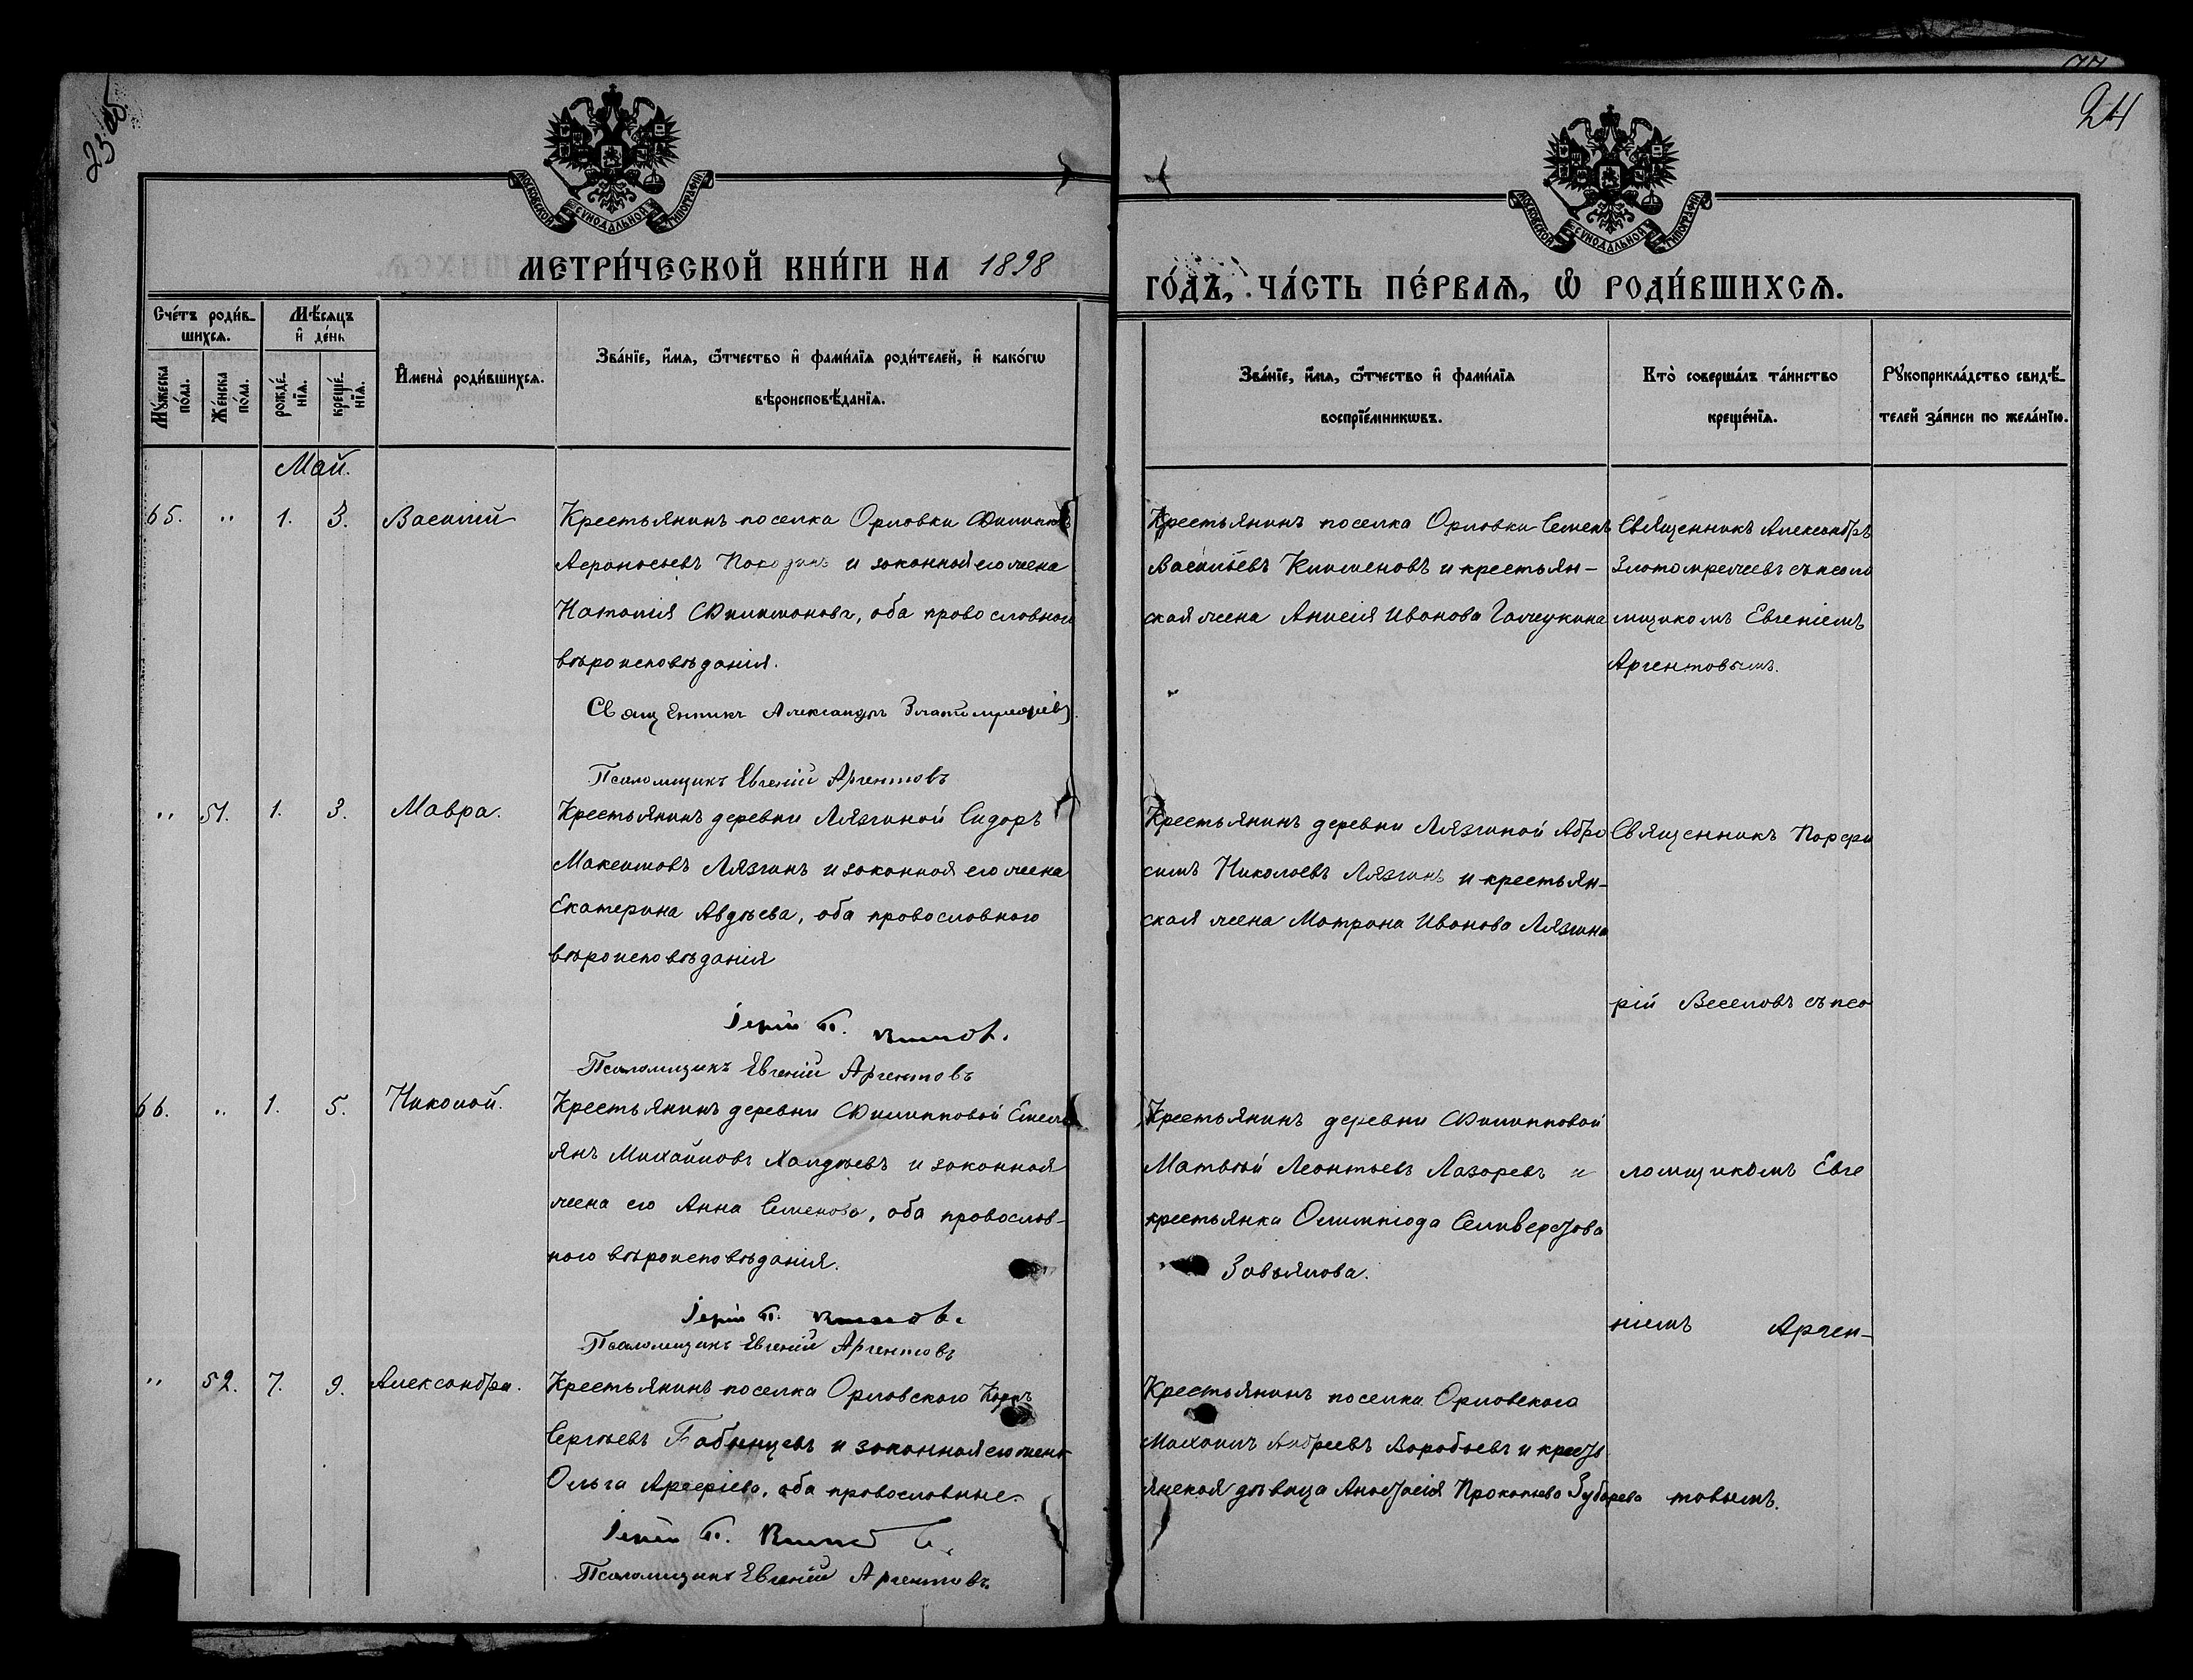 23 об
24
МОСКОВСКОЙ СѴНОДАЛЬНОЙ ТИПОГРАФІИ
МОСКОВСКОЙ СѴНОДАЛЬНОЙ ТИПОГРАФІИ
МЕТРИ́ЧЕСКОЙ КНИ́ГИ НА 1898
ГО́ДЪ, ЧА́СТЬ ПЕ́РВАѦ, Ѽ РОДИ́ВШИХСѦ.
Сче́тъ роди́в-
шихсѧ.
Мѣ́сѧцъ
и҆ де́нь
Мꙋ́жеска по́ла.
Же́нска по́ла.
рожде́-
нїѧ.
креще́-
нїѧ.
И҆мена̀ роди́вшихсѧ.
Зва́нїе, и҆́мѧ, ѻ҆́тчество и҆ фами́лїѧ роди́телей, и҆ како́гѡ
вѣроисповѣ́данїѧ.
Зва́нїе, и҆́мѧ, ѻ҆́тчество и҆ фами́лїѧ
воспрїе́мникѡвъ.
Кто̀ соверша́лъ та́инство
креще́нїѧ.
Рꙋкоприкла́дство свидѣ́-
телей за́писи по жела́нїю.
Май.
65. " 1. 3. Василій
Крестьянинъ поселка Орловки Филиппъ
Афанасьевъ и законная его жена
Наталія Филимонова, оба православнаго
вѣроисповѣданія.
Священникъ Александръ Златомрежевъ
Псаломщикъ Евгеній Аргентовъ
Крестьянинъ поселка Орловки Семенъ
Васильевъ Клименовъ и крестьян-
ская жена Анисія Иванова Галчукина
Священникъ Александръ
Златомрежевъ съ псало
мщикомъ Евгеніемъ
Аргентовымъ.
" 51. 1. 3. Мавра.
Крестьянинъ деревни Лязгиной Сидоръ
Максимовъ Лязгинъ и законная его жена
Екатерина Авдѣева, оба православнаго
вѣроисповѣданія
Іерей П.
Псаломщикъ Евгеній Аргентовъ
Крестьянинъ деревни Лязгиной Абро
симъ Николаевъ Лязгинъ и крестьян-
ская жена Матрона Иванова Лязгина
Священникъ Порфи
рій Веселовъ съ пса
66. " 1. 5. Николай.
Крестьянинъ деревни Филипповой Емель
янъ Михайловъ Халдѣевъ и законная
жена его Анна Семенова, оба православ-
наго вѣроисповѣданія.
Іерей П.
Псаломщикъ Евгеній Аргентовъ
Крестьянинъ деревни Филипповой
Матвѣй Леонтьевъ Лазаревъ и
крестьянка Олимпіада Селиверстова
Завьялова.
ломщикомъ Евге
ніемъ Арген-
" 52. 7. 9. Александра.
Крестьянинъ поселка Орловского Карпъ
Сергѣевъ Бабинцевъ и законная его жена
Ольга Арефіева, оба православные.
Іерей П.
Псаломщикъ Евгеній Аргентовъ.
Крестьянинъ поселка Орловского
Михаилъ Андреевъ Воробьевъ и кресть
янская дѣвица Анастасія Прокопьева Зубарева
товымъ.